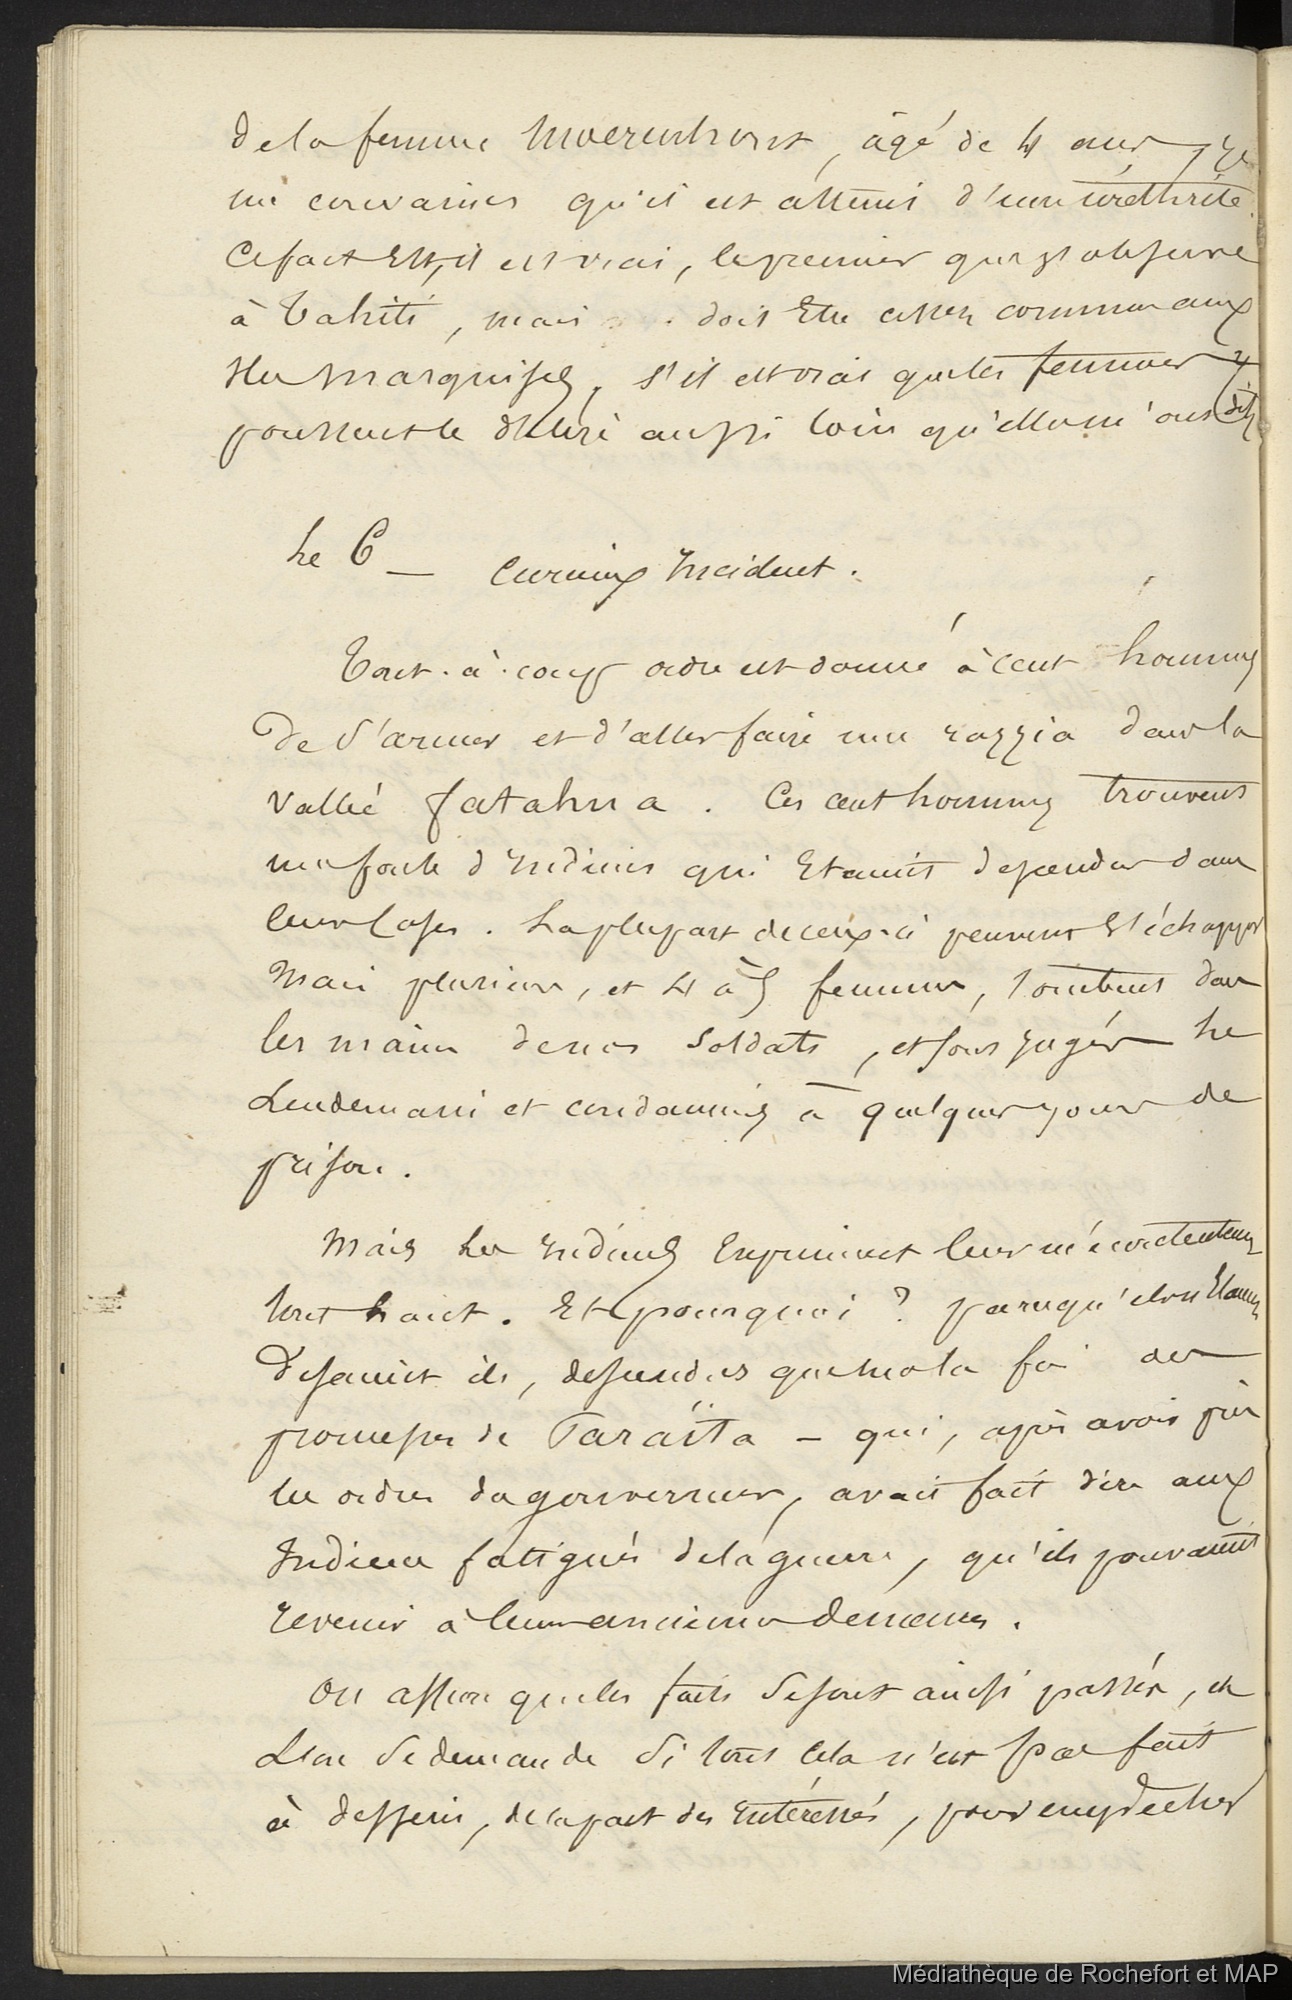 de la femme Moerenhout, âgé de 4 ans, je
me convaincs qu'il est atteint d'une uréthrite.
Ce fait est, il est vrai, le premier que j'ai observé
à Tahiti, mais doit être assez commun aux
Iles Marquises, s'il est vrai que les femmes y
poussent le délire aussi loin qu'elles m'ont dit
Le 6 — Curieux Incident.
Tout-à-coup ordre est donné à cent hommes
de s'armer et d'aller faire une razzia dans la
vallée fatahua. Ces cent hommes trouvent
une foule d'Indiens qui étaient descendus dans
leurs cases. La plupart de ceux-ci peuvent s'échapper
mais plusieurs, et 4 à 5 femmes, tombent dans
les mains de nos soldats, et sont jugés le
lendemain et condamnés à quelques jours de
prison.
Mais les Indiens expriment leur mécontentement
tout haut. Et pourquoi ? parcequ'ils n'étaient
disaient ils, descendus que sur la foi des
promesses de Taraïta — qui, après avoir pris
les ordres du gouverneur, avait fait dire aux
Indiens fatigués de la guerre, qu'ils pouvaient
revenir à leurs anciennes demeures.
On assure que les faits se sont ainsi passés, et
l'on se demande si tout cela n'est pas fait
à dessein, de la part des intéressés, pour empêcher
Médiathèque de Rochefort et MAP